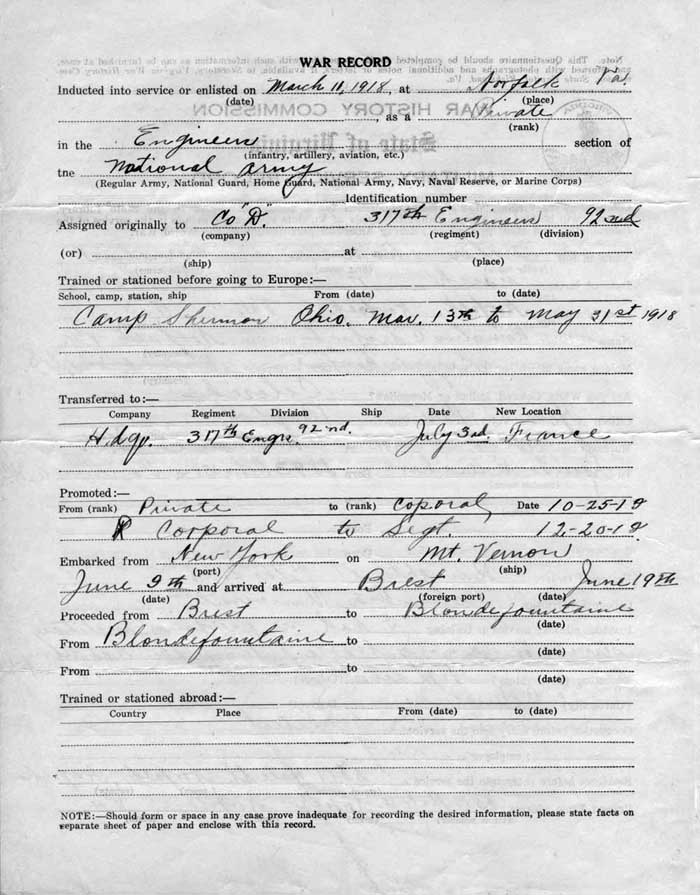 WAR RECORD
Inducted into service or enlisted on March 11, 1918, at Norfolk Va.
(date) (place)
, as a Private
(rank)
in the Engineers section of
(infantry, artillery, aviation, etc.)
the National Army
(Regular Army, National Guard, Home Guard, National Army, Navy, Naval Reserve, or Marine Corps)
Identification number
Assigned originally to Co "D". 317th Engineers 92nd
(company) (regiment) (division)
(or) at
(ship) (place)
Trained or stationed before going to Europe:—
School, camp, station, ship From (date) to (date)
Camp Sherman Ohio. Mar. 13th to May 31st 1918
Transferred to:—
Company Regiment Division Ship Date New Location
H.dq. 317th Engrs. 92nd. July 3rd. France
Promoted:—
From (rank) Private to (rank) Coporal, Date 10-25-18
Corporal to Segt. 12-20-18
Embarked from New York on Mt. Vernon
(port) (ship)
June 9th and arrived at Brest June 19th
(date) (foreign port) (date)
Proceeded from Brest to Blondefountaine
(date)
From Blondefountaine to
(date)
From to
(date)
Trained or stationed abroad:—
Country Place From (date) to (date)
NOTE:—Should form or space in any case prove inadequate for recording the desired information, please state facts on
separate sheet of paper and enclose with this record.